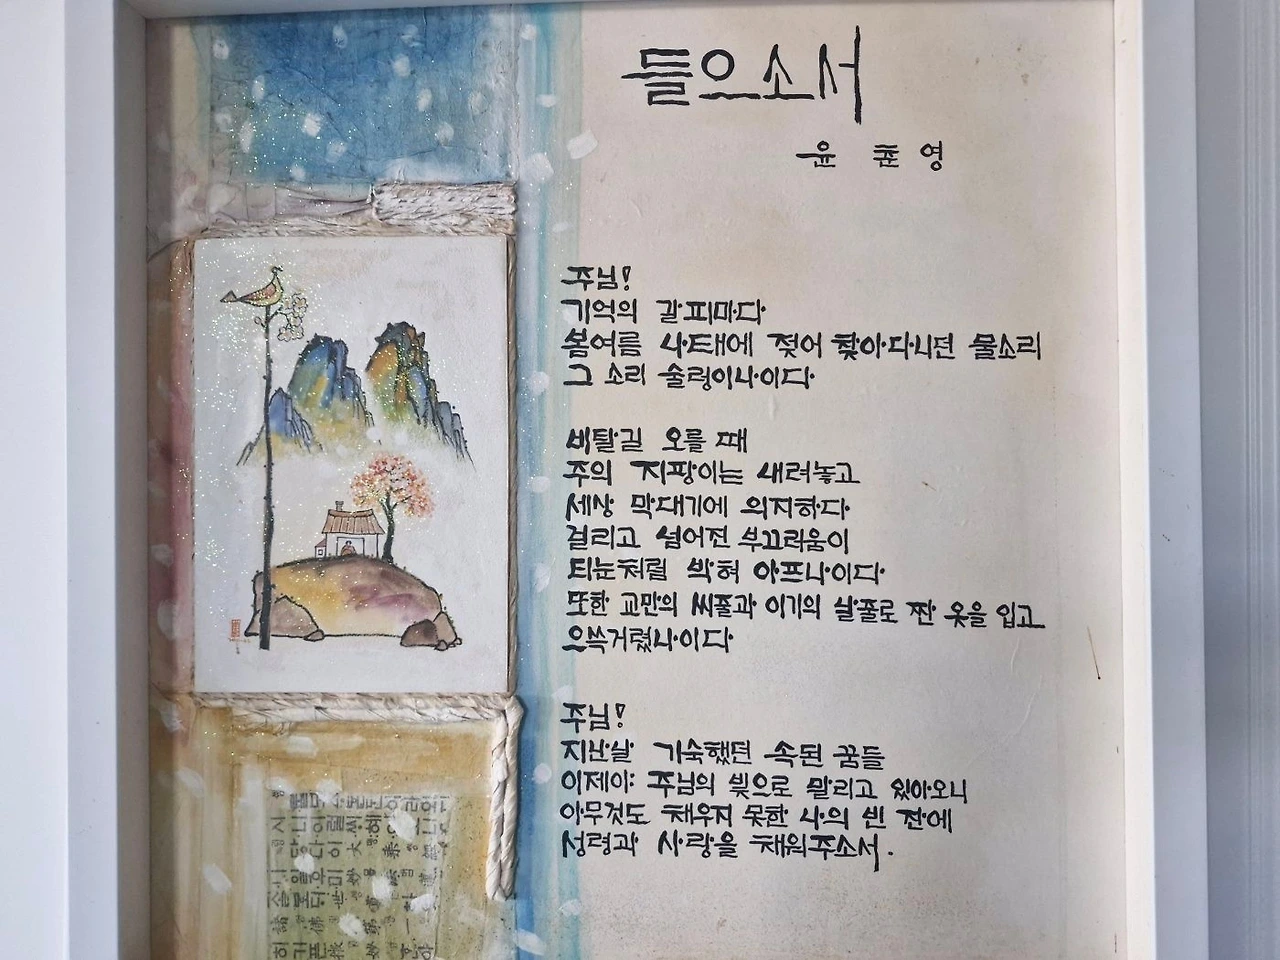 들으소서
윤 춘 영
주님!
기억의 갈피마다
봄여름 나대에 젖어 찾아다니던 물소리
그 소리 술렁이나이다
비탈길 오를 때
주의 지팡이는 내려놓고
세상 막대기에 의지하다
걸리고 넘어진 부끄러움이
티눈처럼 박혀 아프나이다
또한 교만의 씨줄과 이기의 날줄로 짠 옷을 입고
으쓱거렸나이다
주님!
지난날 기숙했던 속된 꿈들
이제야 주님의 빛으로 말리고 있아오니
아무것도 채우지 못한 나의 빈 잔에
성령과 사랑을 채워주소서.